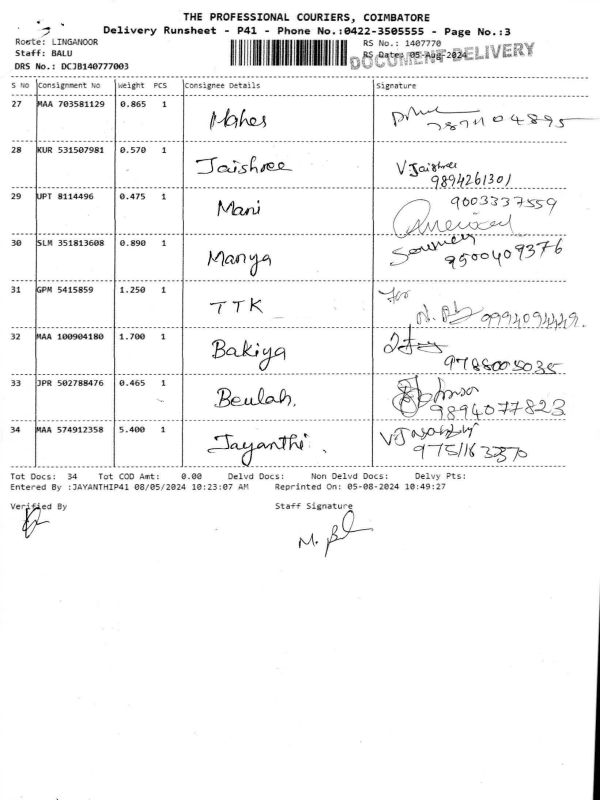 THE PROFESSIONAL COURIERS, COIMBATORE
Delivery Runsheet - P41 - Phone No.:0422-3505555 - Page No.:3
Route: LINGANOOR RS No.: 1407770
Staff: BALU RS Date: 05-Aug-2024 DOCUMENT DELIVERY
DRS No.: DCJB140777003
S No Consignment No Weight PCS Consignee Details Signature
27 MAA 703581129 0.865 1 Mahes
28 KUR 531507981 0.570 1 Jaishree V Jaishree
9894261301
29 UPT 8114496 0.475 1 Mani 9003337559
30 SLM 351813608 0.890 1 Manya
9500409376
31 GPM 5415859 1.250 1 TTK For
32 MAA 100904180 1.700 1 Bakiya
9788005035
33 JPR 502788476 0.465 1 Beulah.
9894077823
34 MAA 574912358 5.400 1 Jayanthi.
Tot Docs: 34 Tot COD Amt: 0.00 Delvd Docs: Non Delvd Docs: Delvy Pts:
Entered By :JAYANTHIP41 08/05/2024 10:23:07 AM Reprinted On: 05-08-2024 10:49:27
Verified By Staff Signature